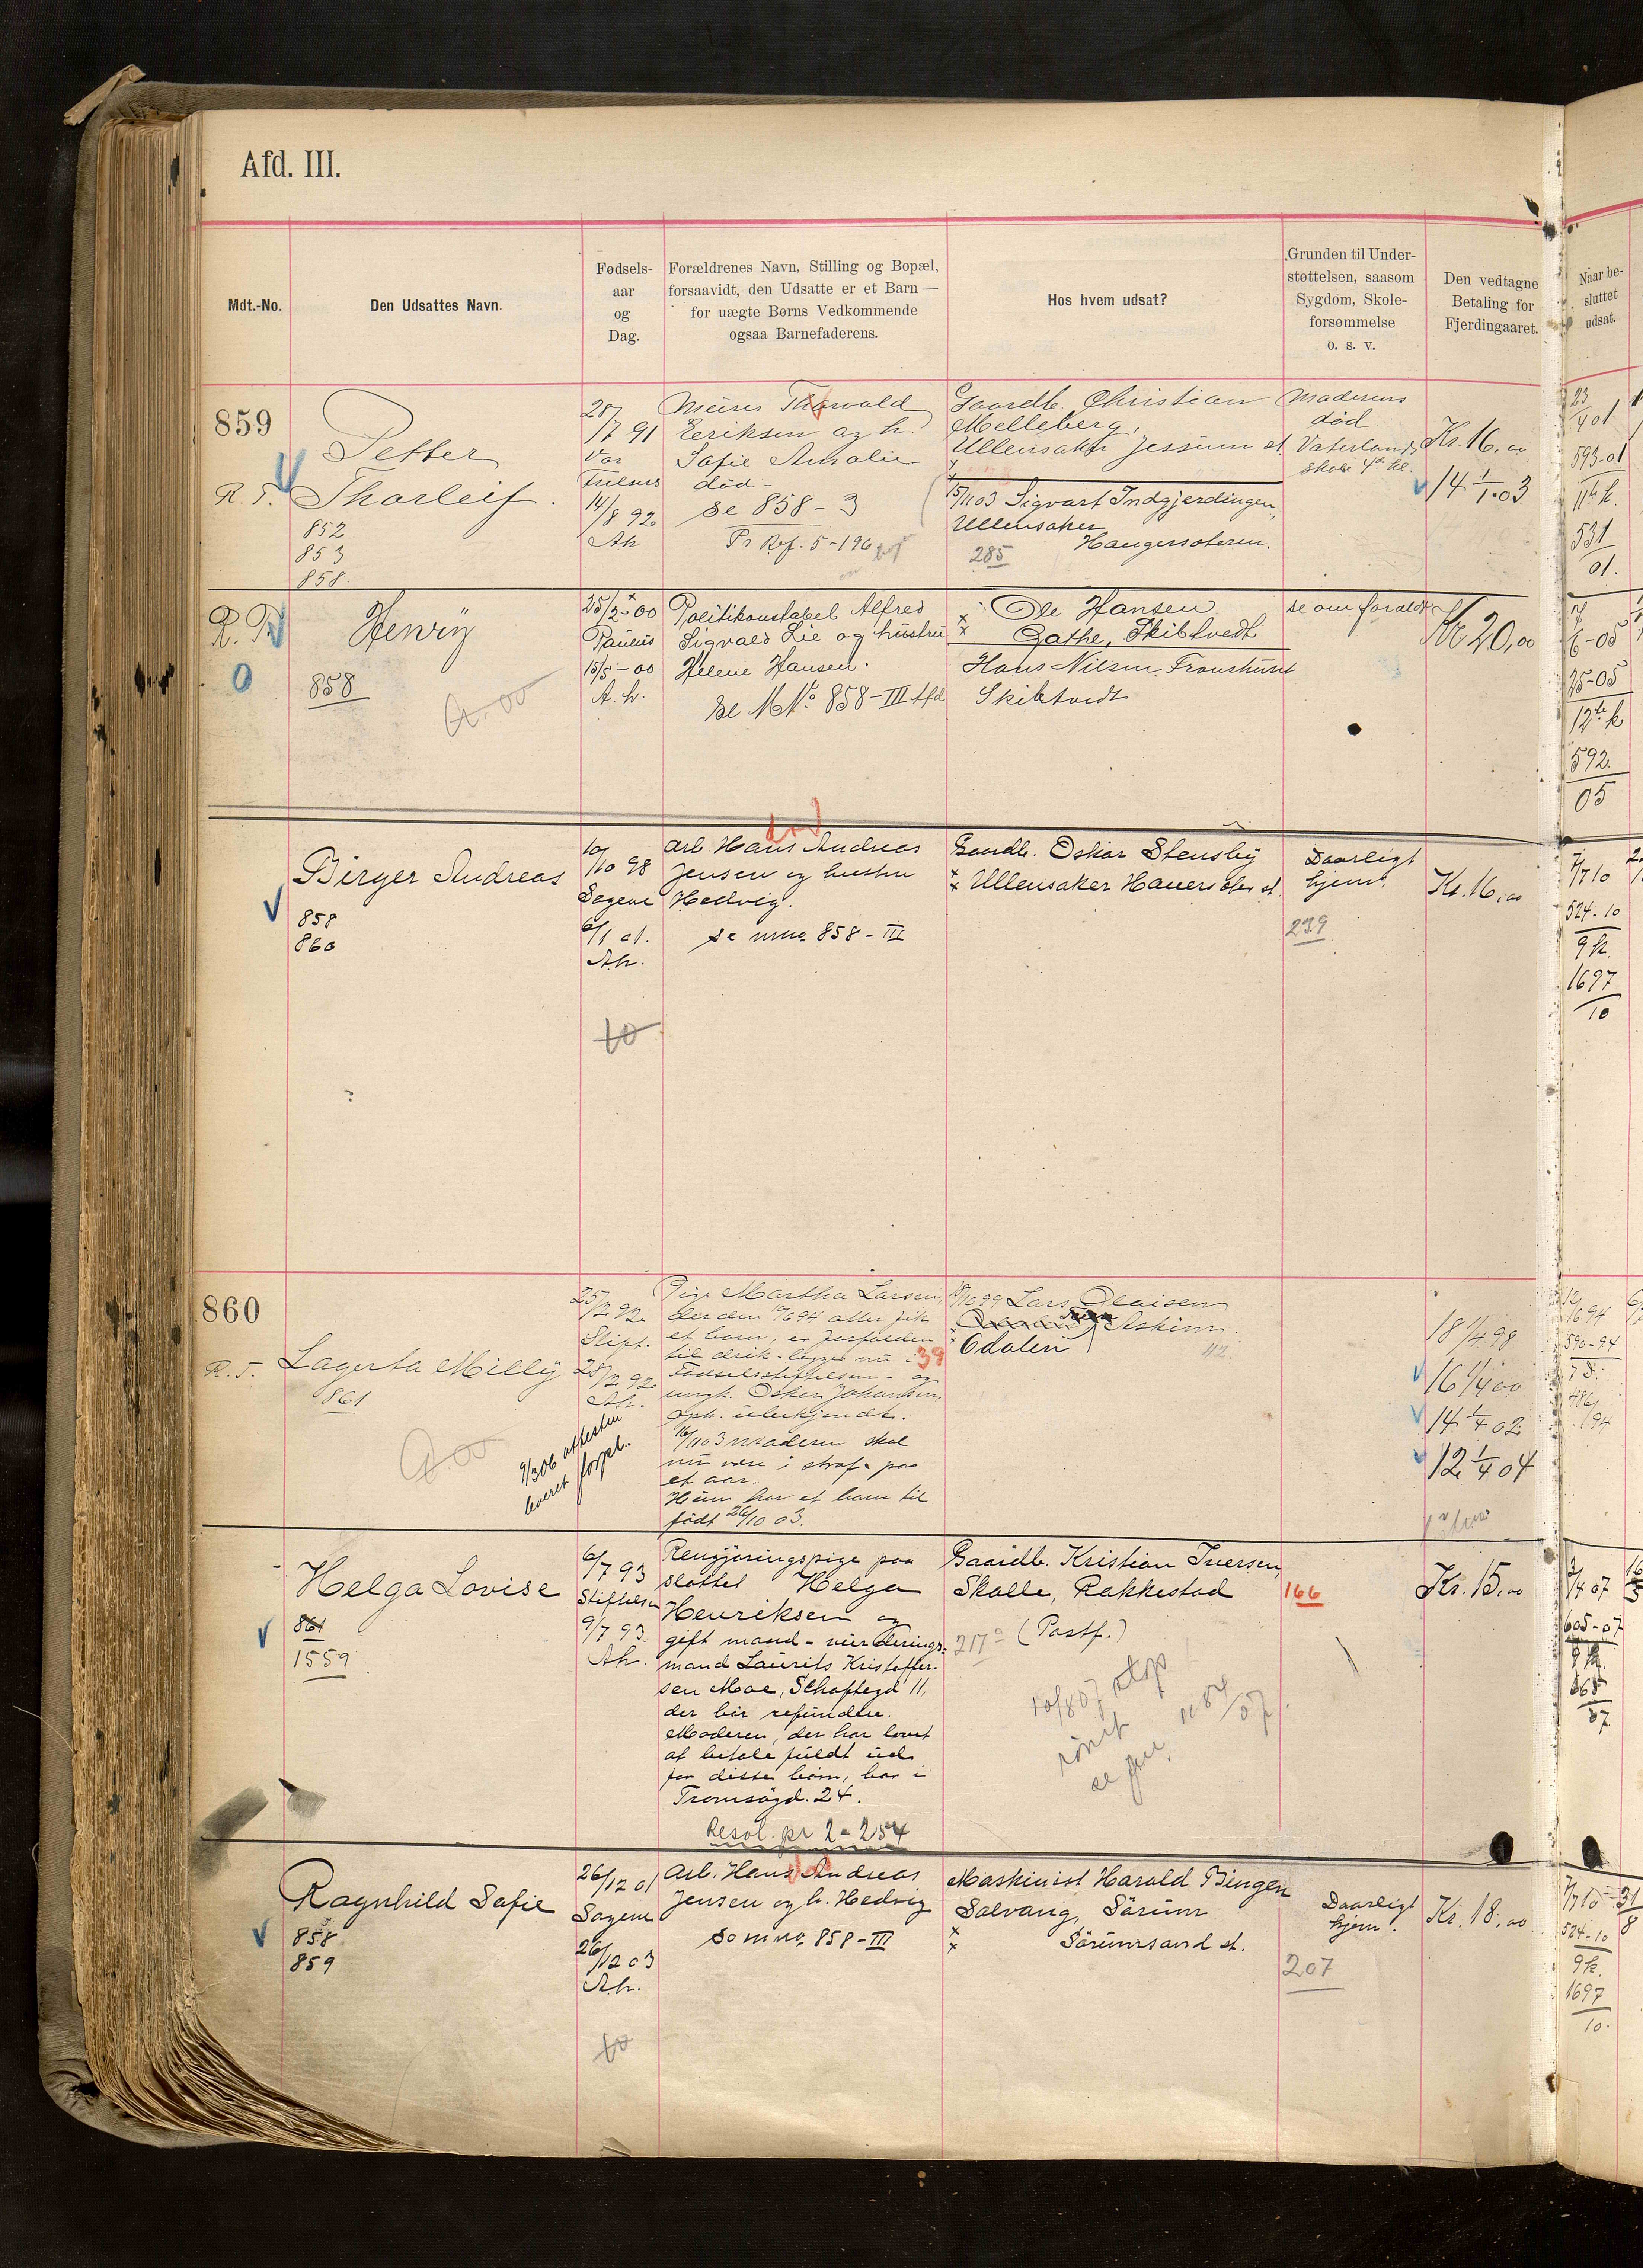 Afd. III.
Mdt.-No.
Den Udsattes Navn.
Fødsels-
aar
og
Dag.
Forældrenes Navn, Stilling og Bopæl,
forsaavidt, den Udsatte er et Barn —
for uægte Børns Vedkommende
ogsaa Barnefaderens.
Hos hvem udsat?
Grunden til Under-
støttelsen, saasom
Sygdom, Skole-
forsømmelse
o. s. v.
Den vedtagne
Betaling for
Fjerdingaaret.
Naar be-
sluttet
udsat.
859
R. T.
Petter
Thorleif.
852
853
858.
28/7 91
Vor
Frelsers
14/8 92
Ah
Murer Thorvald
Eriksen og h.
Sofie Amalie
død -
se 858 - 3
Pr Ref. 5 - 196
Gaardb. Christian
Melleberg,
Ullensaker Jessum st
15/11 03 Sigvart Indgjerdingen,
Ullensaker
Haugersæteren.
285
Moderens
død
Vaterlands
skole 4de kl.
Kr. 16,00
14 1/1.03
23/4 01
593-01
11te k.
531
01.
Henry
858
25/2-00
Paulus
15/5-00
A. h.
Politikonstabel Alfred
Sigvald Lie og hustru
Helene Hansen.
se M No 858 - III Afd
Ole Hansen
Gathe, Skibtvedt
Hans Nilsen Fronshuset
Skibtvedt
se om foraldr
Kr 20,00
6-05
75-05
12te k
592
05
Birger Andreas
858
860
10/10 98
Sagene
6/1 01.
Ah.
to
Arb. Hans Andreas
død
Jensen og hustru
Hedvig.
se mno. 858 - III
Gaardb. Oskar Stensby
Ullensaker Hauersæter st.
Daarligt
hjem.
239
Kr. 16,00
7/7 10
524-10
9 k.
1697
10
860
R. T.
Lagerta Milly
861
25/2 92
Stift.
28/2 92
Ah.
9/3 06 attesten
leveret forpl.
Pige Martha Larsen,
der den 19/6 94 atter fik
et barn, er forfalden
til drik - ligger nu i 39
Fødselsstiftelsen - og
ungk. Oskar Johansen,
oph. ubekjendt.
16/11 03 moderen skal
nu være i straf paa
et aar.
Hun har et barn til
født 26/10 03.
10 99 Lars Olaisen
Askim
Odalen
42
18 1/4 98
16 1/4 00
14 1/4 02
12 1/4 04
12/6 94
590-94
486
94
Helga Lovise
861
1559
6/7 93
Stiftelsen
9/7 93.
Ah.
Rengjøringspige paa
slottet Helga
Henriksen og
gift mand - vurderings-
mand Laurits Kristoffer-
sen Moe, Schaftegd 11,
der bør refundere.
Moderen, der har lovet
at betale fuldt ud
for dette barn, bor i
Tromsøgd. 24.
Resol. pr 2 - 254
Gaardb. Kristian Iversen,
Skalle, Rakkestad
(Postf.)
217
10/8 07 stop
166
Kr. 15,00
3/4 07
605-07
9 k.
865
07
Ragnhild Sofie
858
859
26/12 01
Sagene
26/12 03
Ah.
to
Arb. Hans Andreas
død
Jensen og h. Hedvig
se mno. 858 - III
Maskinist Harald Bingen
Solvang, Sørum
Sørumsand st.
Daarligt
hjem.
207
Kr. 18,00
7/7 10
31/8
524-10
9 k.
1697
10.